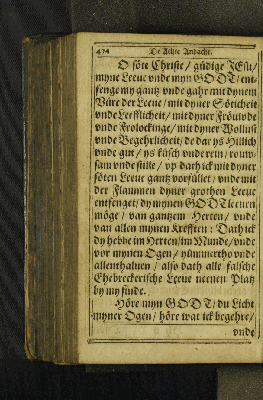 474 De Achte Andacht.
O söte Christe / gůdige JEsu /
myne Leeue vnde myn GODT / ent-
fenge my gantz vnde gahr mit dynem
Vüre der Leeue / mit dyner Söticheit
vnde Leefflicheit / mit dyner Fröuwde
vnde Frolockinge / mit dyner Wollust
vnde Begehrlicheit / de dar ys Hillich
vnde gut / ys küsch vnde rein / rouw-
sam vnde stille / vp dath ick mit dyner
söten Leeue gantz vorfüllet / vnde mit
der Flammen dyner grothen Leeue
entfenget / dy mynen GODT leeuen
möge / van gantzem Herten / vnde
van allen mynen Krefften: Dath ick
dy hebbe im Herten / im Munde / vnde
vor mynen Ogen / nümmertho vnde
allenthaluen / also dath alle falsche
Ehebreckerische Leeue neenen Platz
by my finde.
Höre myn GODT / du Licht
myner Ogen / höre wat ick begehre /
vnde